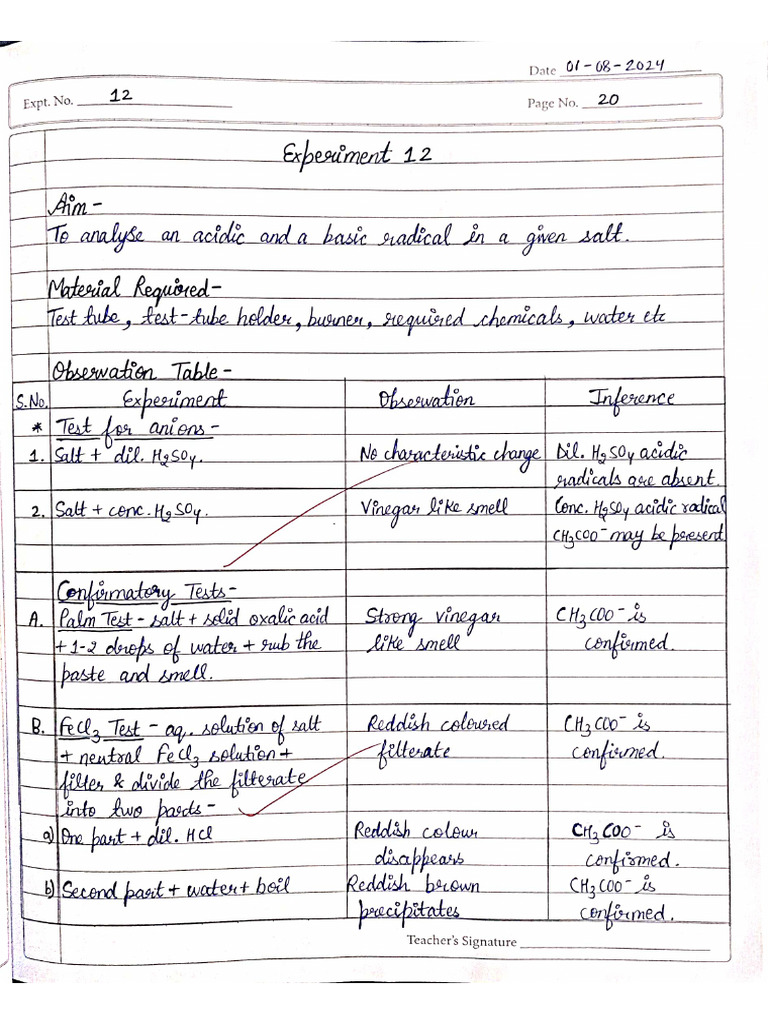 Date 01-08-2024
Expt. No. 12
Page No. 20
Experiment 12
Aim-
To analyse an acidic and a basic radical in a given salt.
Material Required-
Test tube, test-tube holder, burner, required chemicals, water etc
Observation Table-
S.No. Experiment Observation Inference
* Test for anions-
1. Salt + dil. H₂SO₄. No characteristic change Dil. H₂SO₄ acidic
radicals are absent.
2. Salt + conc. H₂SO₄. Vinegar like smell Conc. H₂SO₄ acidic radical
CH₃COO⁻ may be present
Confirmatory Tests-
A. Palm Test - salt + solid oxalic acid Strong vinegar CH₃COO⁻ is
+ 1-2 drops of water + rub the like smell confirmed.
paste and smell.
B. FeCl₃ Test - aq. solution of salt Reddish coloured CH₃COO⁻ is
+ neutral FeCl₃ solution + filterate confirmed.
filter & divide the filterate
into two parts-
a) One part + dil. HCl Reddish colour CH₃COO⁻ is
disappears confirmed.
b) Second part + water + boil Reddish brown CH₃COO⁻ is
precipitates confirmed.
Teacher's Signature